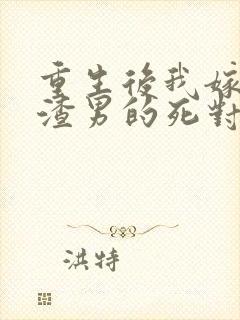 重生後我嫁
渣男的死對
洪特